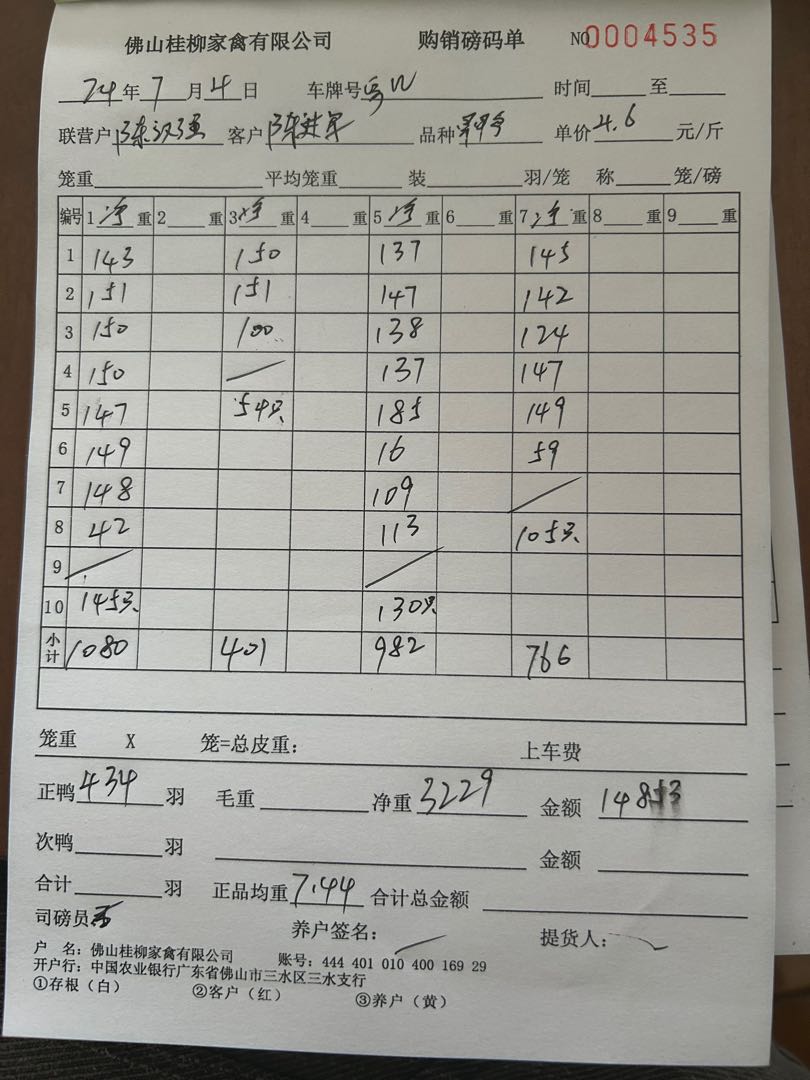 佛山桂柳家禽有限公司 购销磅码单 NO 0004535
24年7月4日 车牌号 时间 至
联营户 陈汉强 客户 陈进军 品种 单价4.6元/斤
笼重 平均笼重 装 羽/笼 称 笼/磅
编号 1净重 2重 3净重 4重 5净重 6重 7净重 8重 9重
1 143 150 137 145
2 151 151 147 142
3 150 100 138 124
4 150 137 147
5 147 54只 185 149
6 149 16 59
7 148 109
8 42 113 105只
9
10 145只 130只
小计 1080 401 982 766
笼重 X 笼=总皮重: 上车费
正鸭434羽 毛重 净重3229 金额 14853
次鸭 羽 金额
合计 羽 正品均重7.44 合计总金额
司磅员 养户签名: 提货人:
户 名: 佛山桂柳家禽有限公司 账号: 444 401 010 400 169 29
开户行: 中国农业银行广东省佛山市三水区三水支行
①存根(白) ②客户(红) ③养户(黄)